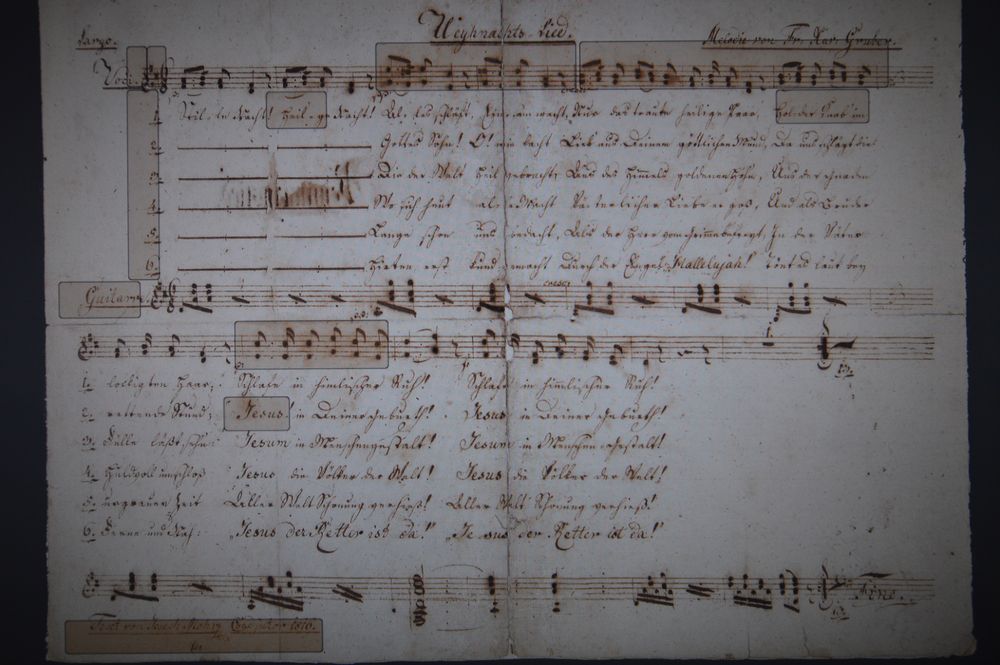 Weyhnachts-Lied.
Largo. Melodie von Fr. Xav. Gruber.
Voci.
1. Stille Nacht! Heilige Nacht! Alles schläft, Eynsam wacht, Nur das traute heilige Paar, Holder Knab im
2. Gottes Sohn! O! wie lacht Lieb' aus Deinem göttlichen Mund, Da uns schlägt die
3. Die der Welt Heil gebracht, Aus des Himmels goldenen Höhn, Uns der Gnaden
4. Wo sich heut alle Macht Väterlicher Liebe ergoß, Und als Bruder
5. Lange schon uns bedacht, Als der Herr vom Grimme befreyt, In der Väter
6. Hirten erst Kund gemacht Durch der Engel Hallelujah! Tönt es laut bey
cresc:
Guitarre.
1. lockigten Haar; Schlafe in himlischer Ruh! Schlafe in himmlischer Ruh!
2. rettende Stund; Jesus in Deiner Geburth! Jesus in Deiner Geburth!
3. Fülle läßt sehn: Jesum in Menschengestalt! Jesum in Menschengestalt!
4. Huldvoll umschloß Jesus die Völker der Welt! Jesus die Völker der Welt!
5. urgrauen Zeit Aller Welt Schonung verhieß! Aller Welt Schonung verhieß!
6. Ferne und Nah: „Jesus der Retter ist da!" „Jesus der Retter ist da!"
Fine.
Text von Joseph Mohr Coadjutor 1816.